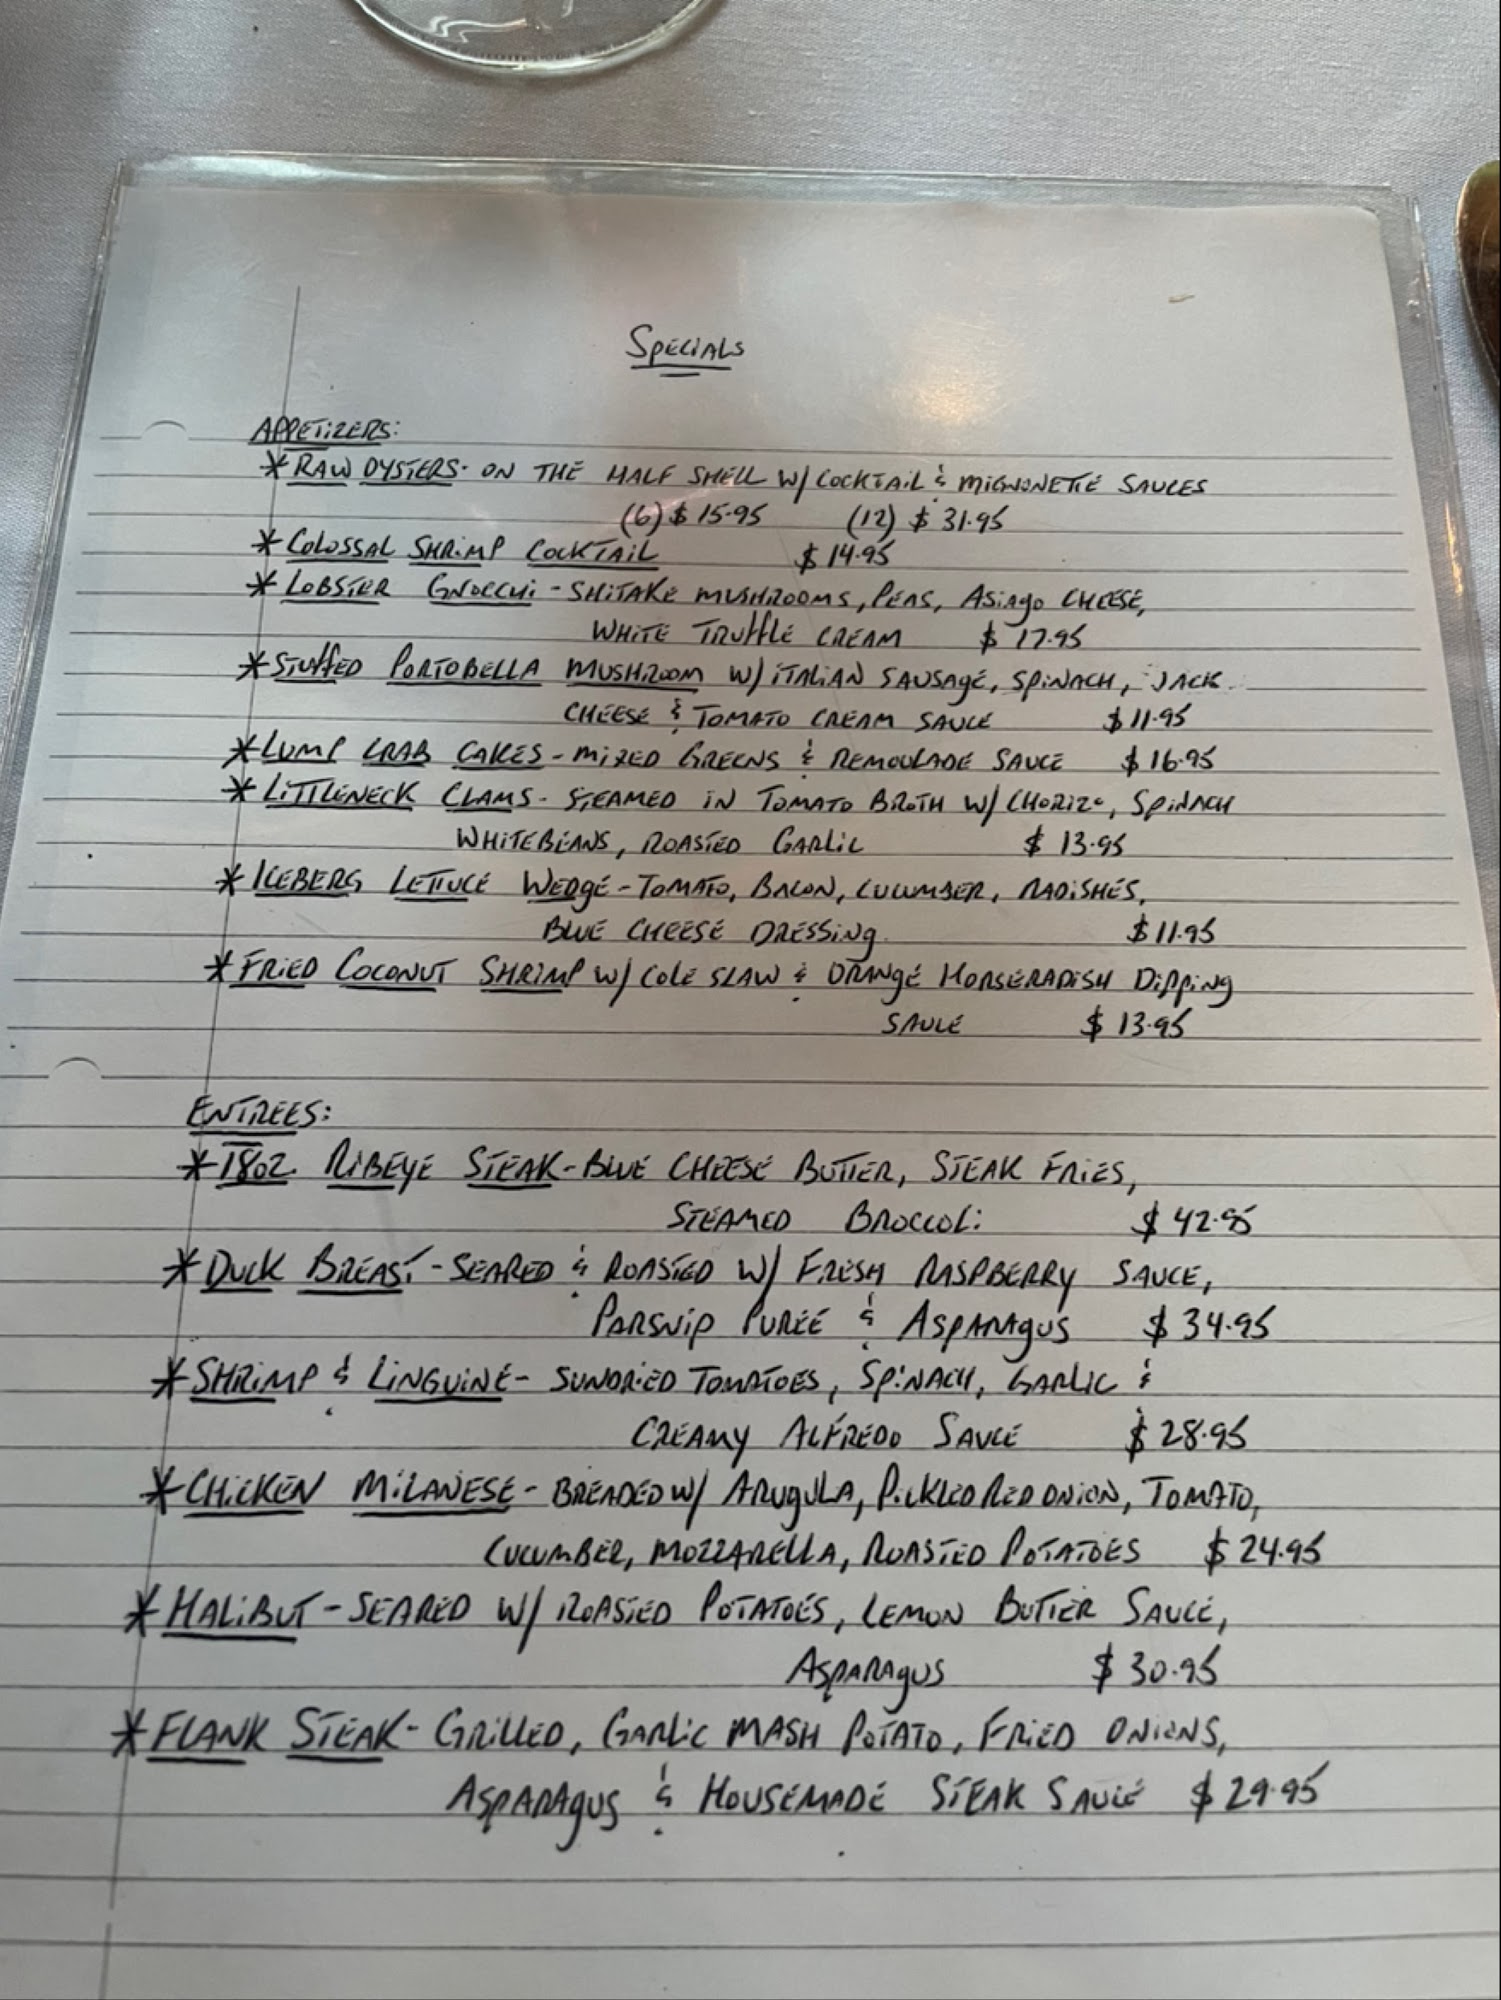 SPECIALS
APPETIZERS:
* RAW OYSTERS - ON THE HALF SHELL W/ COCKTAIL & MIGNONETTE SAUCES
(6) $ 15.95 (12) $ 31.95
* COLOSSAL SHRIMP COCKTAIL $ 14.95
* LOBSTER GNOCCHI - SHITAKE MUSHROOMS, PEAS, ASIAGO CHEESE,
WHITE TRUFFLE CREAM $ 17.95
* STUFFED PORTOBELLA MUSHROOM W/ ITALIAN SAUSAGE, SPINACH, JACK
CHEESE & TOMATO CREAM SAUCE $ 11.95
* LUMP CRAB CAKES - MIXED GREENS & REMOULADE SAUCE $ 16.95
* LITTLENECK CLAMS - STEAMED IN TOMATO BROTH W/ CHORIZO, SPINACH
WHITE BEANS, ROASTED GARLIC $ 13.95
* ICEBERG LETTUCE WEDGE - TOMATO, BACON, CUCUMBER, RADISHES,
BLUE CHEESE DRESSING $ 11.95
* FRIED COCONUT SHRIMP W/ COLE SLAW & ORANGE HORSERADISH DIPPING
SAUCE $ 13.95
ENTREES:
* 18OZ. RIBEYE STEAK - BLUE CHEESE BUTTER, STEAK FRIES,
STEAMED BROCCOLI $ 42.95
* DUCK BREAST - SEARED & ROASTED W/ FRESH RASPBERRY SAUCE,
PARSNIP PUREE & ASPARAGUS $ 34.95
* SHRIMP & LINGUINE - SUNDRIED TOMATOES, SPINACH, GARLIC &
CREAMY ALFREDO SAUCE $ 28.95
* CHICKEN MILANESE - BREADED W/ ARUGULA, PICKLED RED ONION, TOMATO,
CUCUMBER, MOZZARELLA, ROASTED POTATOES $ 24.95
* HALIBUT - SEARED W/ ROASTED POTATOES, LEMON BUTTER SAUCE,
ASPARAGUS $ 30.95
* FLANK STEAK - GRILLED, GARLIC MASH POTATO, FRIED ONIONS,
ASPARAGUS & HOUSEMADE STEAK SAUCE $ 29.95